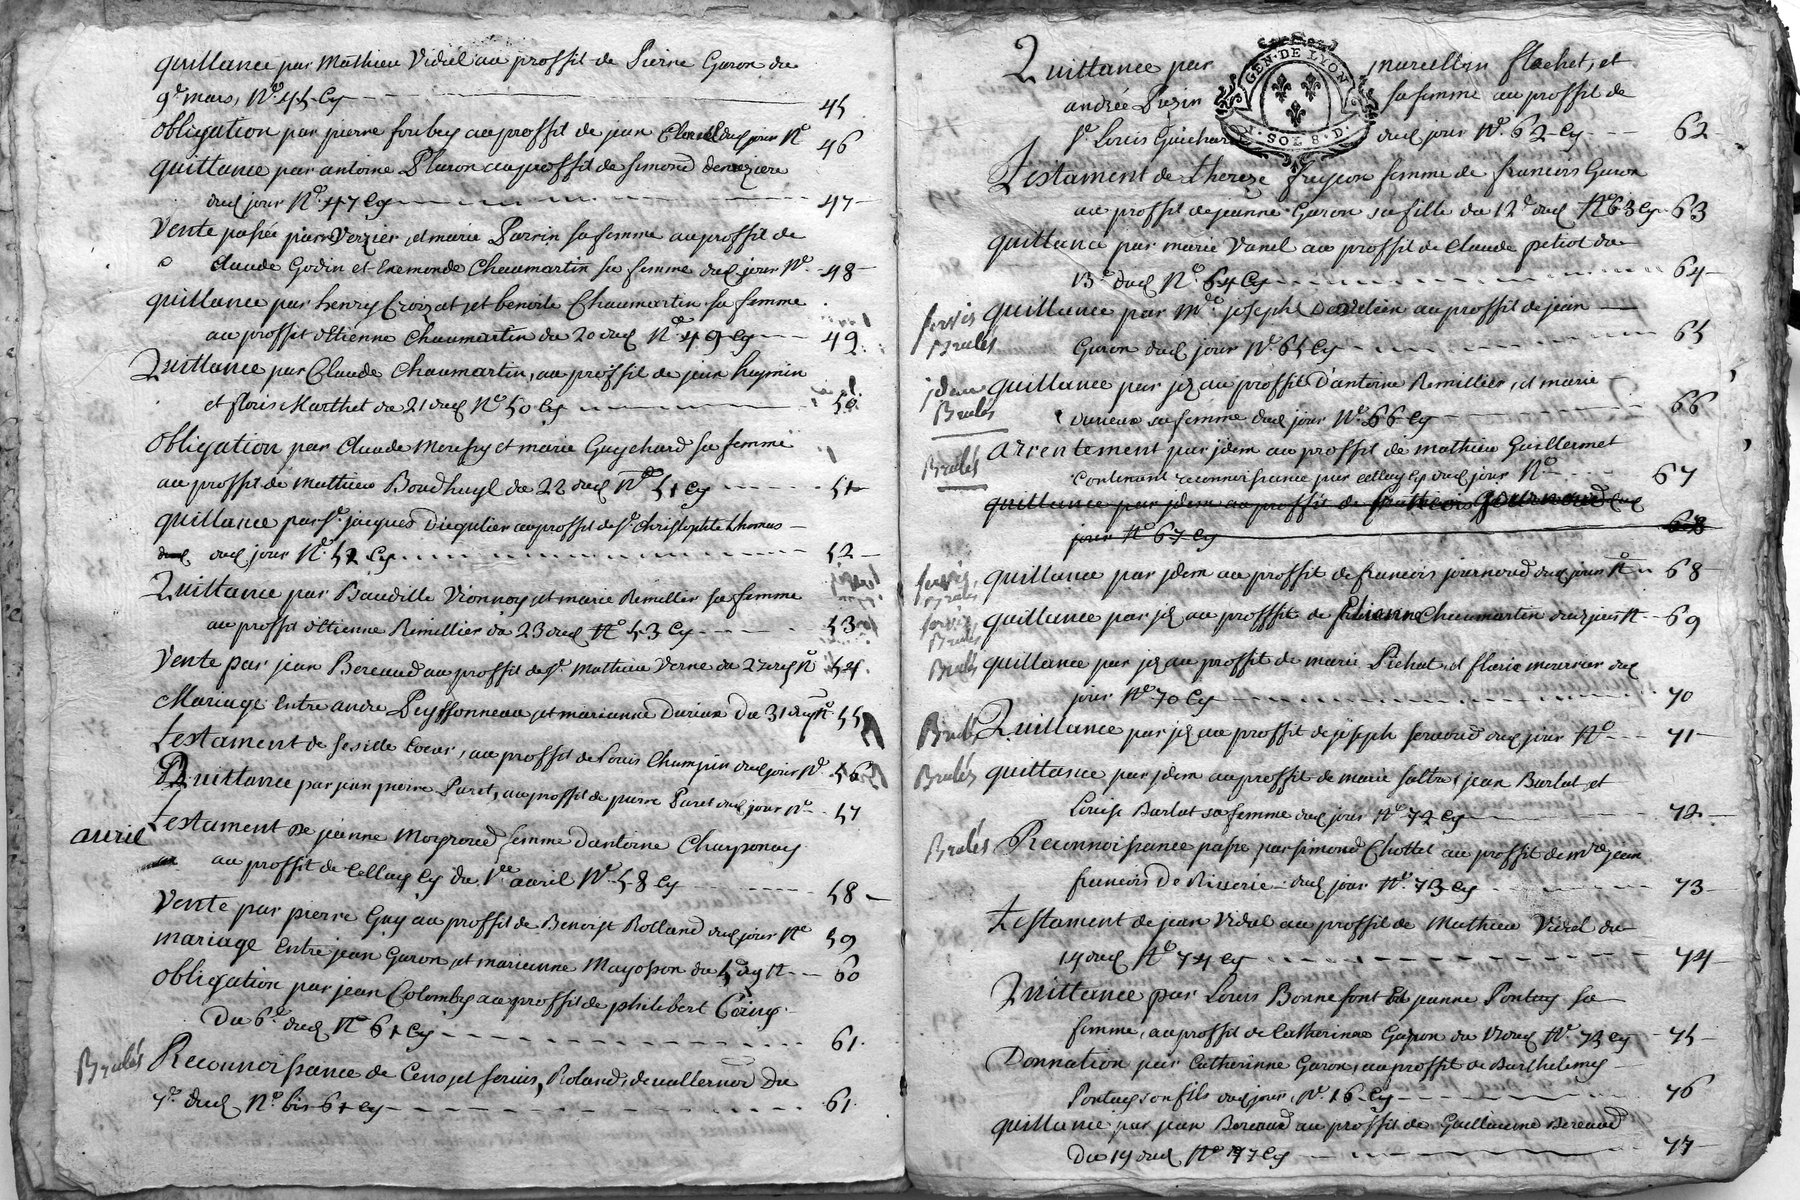 quittance par Mathieu Vidal au proffit de Pierre Garon du
9e mars, No 45 Cy 45
obligation par pierre au proffit de jean dud jour No 46
quittance par antoine Planon au proffit de Simond
dud jour No 47 Cy 47
Vente pasée par Verzier, et marie Parrin sa femme au proffit de
Claude Godin et Exemonde Chaumartin sa femme dud jour No 48
quittance par henry Croizat, et benoite Chaumartin sa femme
au proffit d'Etienne Chaumartin du 20 dud No 49 Cy 49
Quittance par Claude Chaumartin, au proffit de jean
et floris Marthet du 21 dud No 50 Cy 50
obligation par Claude et marie Guychard sa femme
au proffit de Mathieu du 22 dud No 51 Cy 51
quittance par Sr jacques au proffit de Sr Christophle thomas
dud jour No 52 Cy 52
Quittance par Baudille Vionnoy, et marie Remillier sa femme
au proffit d'Etienne Remillier du 23 dud No 53 Cy 53
Vente par jean Bereaud au proffit de Sr Mathieu Verne du 27 dud No 54
Mariage Entre andré Peyssonneau, et marianne Durieu du 31 dud No 55
testament de, au proffit de Louis Champin dud jour No 56
Quittance par jean pierre Paret, au proffit de pierre Paret dud jour No 57
avril
testament de jeanne femme d'antoine Charponay
au proffit de Cy du 1er avril No 58 Cy 58
Vente par pierre Guy au proffit de Benoist Rolland dud jour No 59
mariage Entre jean Garon, et marianne Mayosson du 5 dud No 60
obligation par jean Colomby au proffit de philibert
Du 6e dud No 61 Cy 61
Brulés Reconnoissance de Cens et servis, Roland, de du
7e dud No bis 61 Cy 61
Quittance par marcellin flachet, et
andrée sa femme au proffit de
GEN. DE LYON
I. SOL 8. D.
Sr Louis Guichard dud jour No 62 Cy 62
Testament de thereze femme de francois Garon
au proffit de jeanne Garon sa fille du 12e dud No 63 Cy 63
quittance par marie Vanel au proffit de Claude petiot du
13e dud No 64 Cy 64
servis Brulés quittance par Mre joseph Dandelier au proffit de jean
Garon dud jour No 65 Cy 65
jdem Brulés quittance par jd au proffit D'antoine Remillier, et marie
Durieu sa femme dud jour No 66 Cy 66
Brulés arrentement par jdem au proffit de mathieu Guillermet
Contenant reconnoissance par Cy dud jour No 67
quittance par jdem au proffit de francois Journoud dud
jour No 67 Cy 68
servis Brulés quittance par jdem au proffit de francois journoud dud jour No 68
servis Brulés quittance par jd au proffit de Etienne Chaumartin dud jour No 69
Brulés quittance par jd au proffit de marie Pichat, et floris mourier dud
jour No 70 Cy 70
Brulés Quittance par jd au proffit de joseph dud jour No 71
Brulés quittance par jdem au proffit de marie, jean Barlat, et
Louise Barlat sa femme dud jour No 72 Cy 72
Brulés Reconnoissance pasée par Simond Chollet au proffit de Mre jean
francois De Riverie dud jour No 73 Cy 73
testament de jean Vidal au proffit de Mathieu Vidal du
14 dud No 74 Cy 74
Quittance par Louis Bonnefont Et jeanne Pontuy sa
femme, au proffit de Catherinne Garon du dud No 75 Cy 75
Donnation par Catherinne Garon, au proffit de Barthelemy
Pontuy son fils dud jour, No 76 Cy 76
quittance par jean Bereaud au proffit de Guillaume Bereaud
Du 19 dud No 77 Cy 77